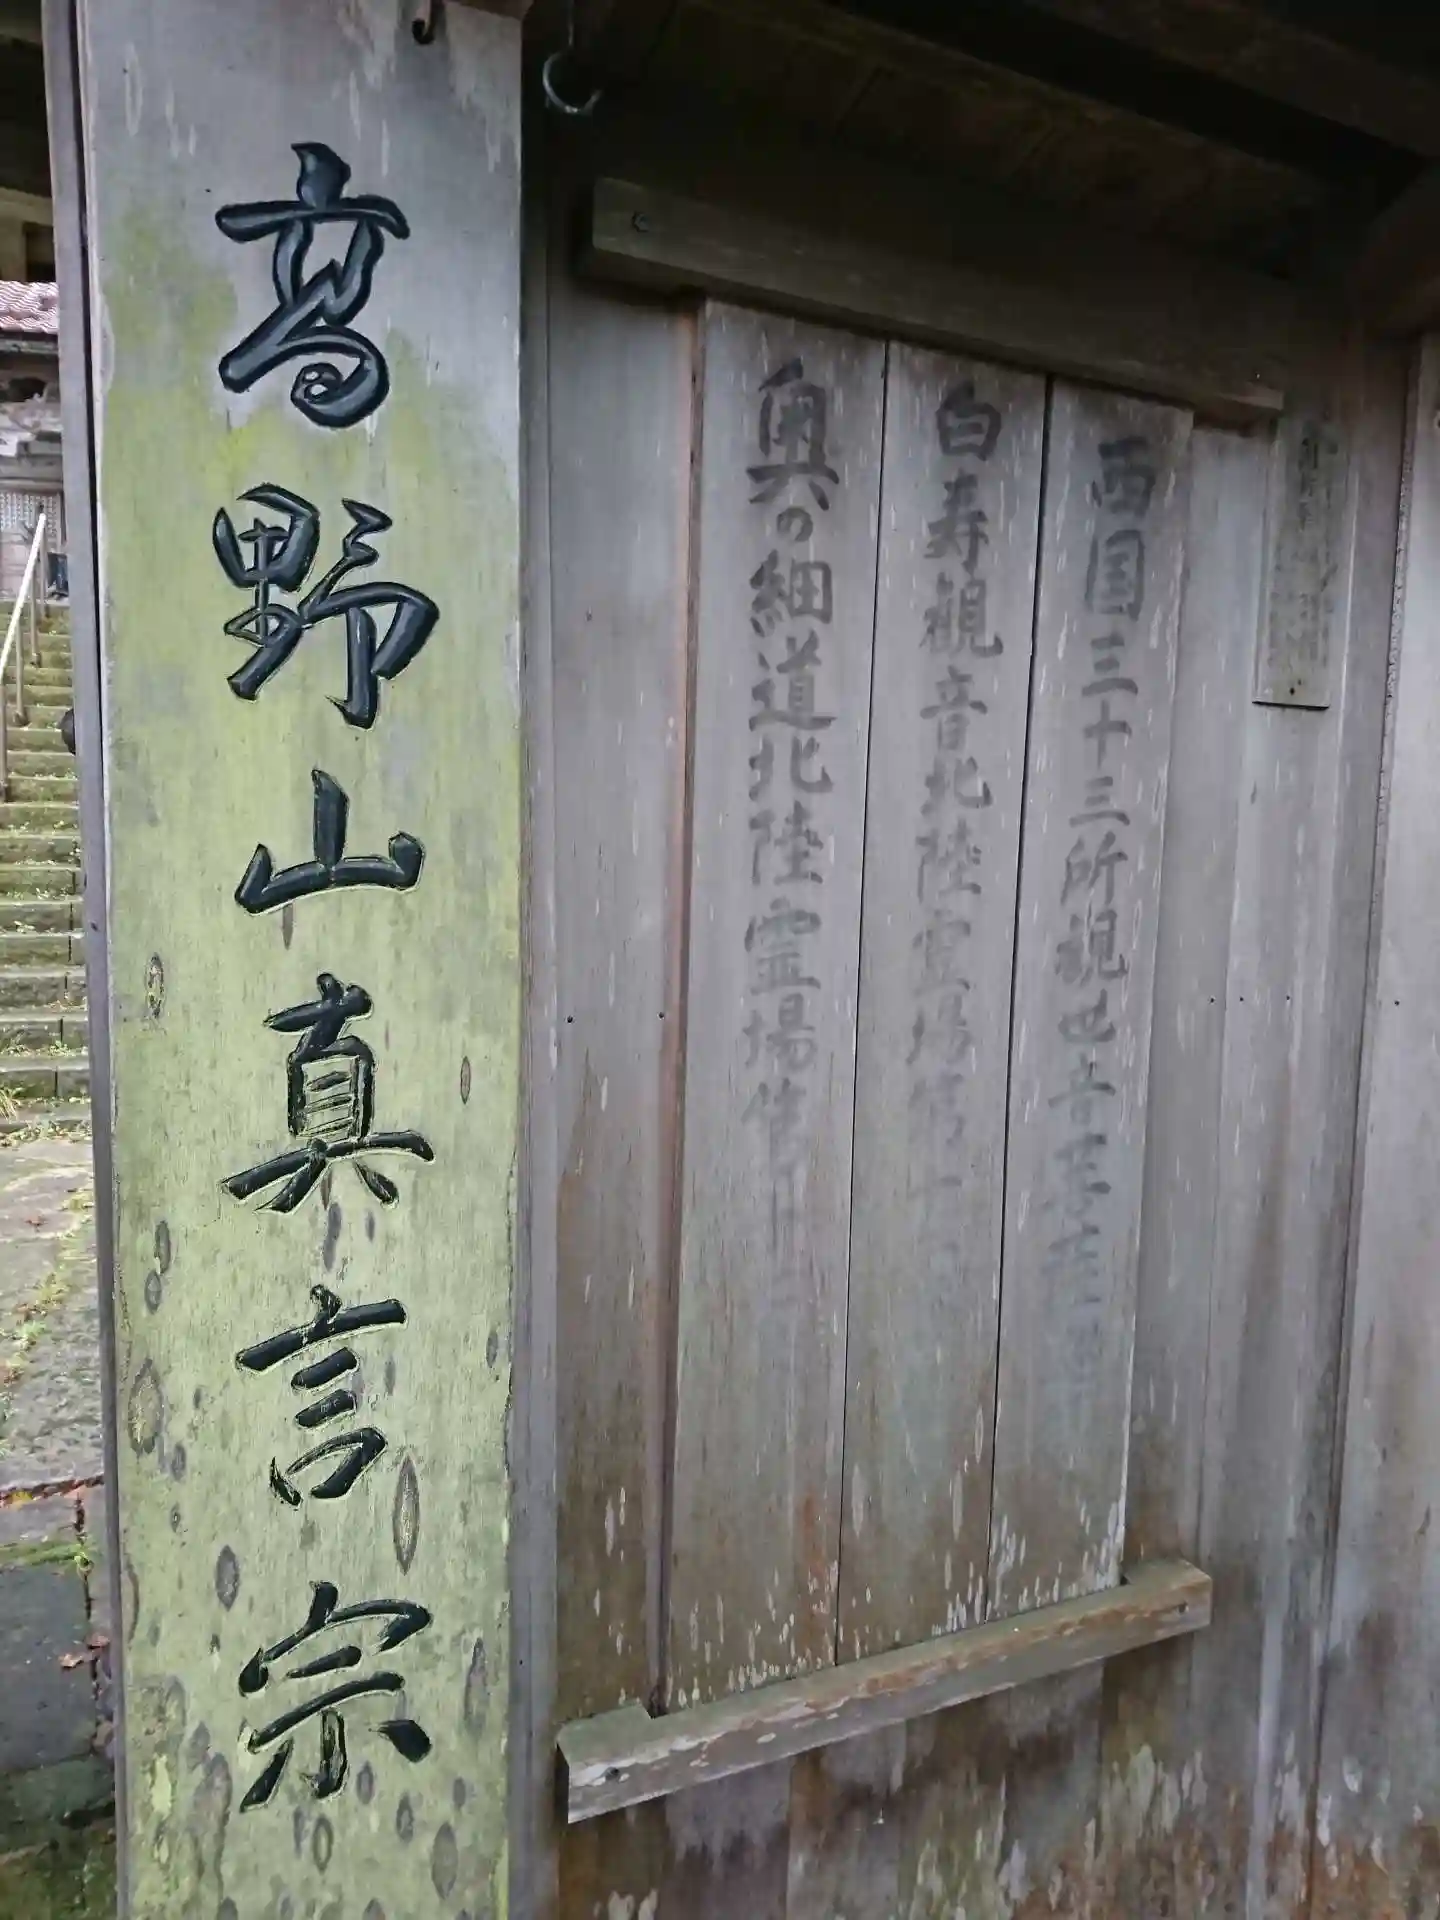 西国三十三所観世音菩
白寿観音北陸霊場第十
奥の細道北陸霊場第
高野山真言宗